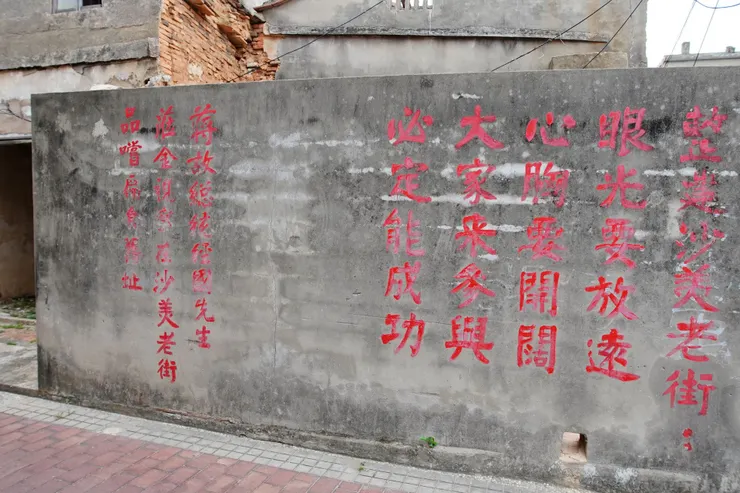 整建沙美老街：
眼光要放遠
心胸要開闊
大家來參與
必定能成功
蔣故總統經國先生
蒞金視察在沙美老街
品嚐扁食舊址